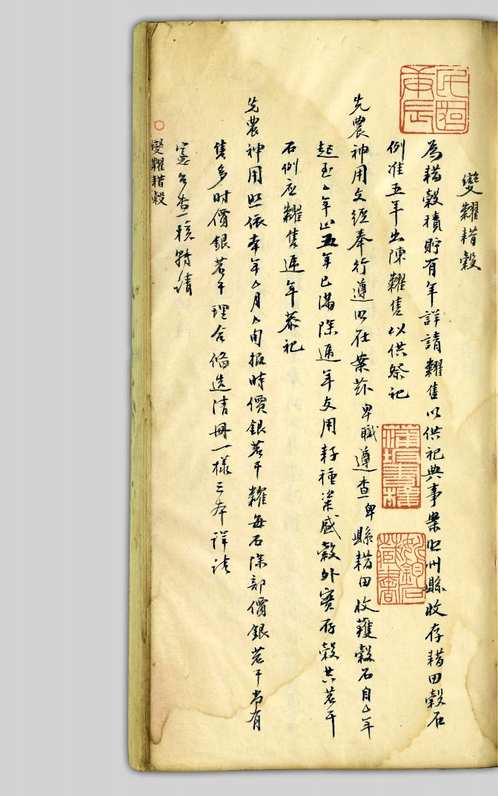 變糶耤穀
為耤穀積貯有年詳請糶售以供祀典事案照州縣收存耤田穀石
例准五年出陳糶售以供祭祀
先農神用久經奉行遵照在案茲卑職遵查卑縣耤田收穫穀石自厶年
起至厶年止五年已滿除遞年支用籽種粢盛穀外實存穀共若干
石例应糶售遞年恭祀
先農神用照依本年厶月厶旬报時價銀若干糶每石除部價銀若干尚有
售多时價銀若干理合俻造清冊一樣三本詳請
憲台查核轉请
變糶耤穀